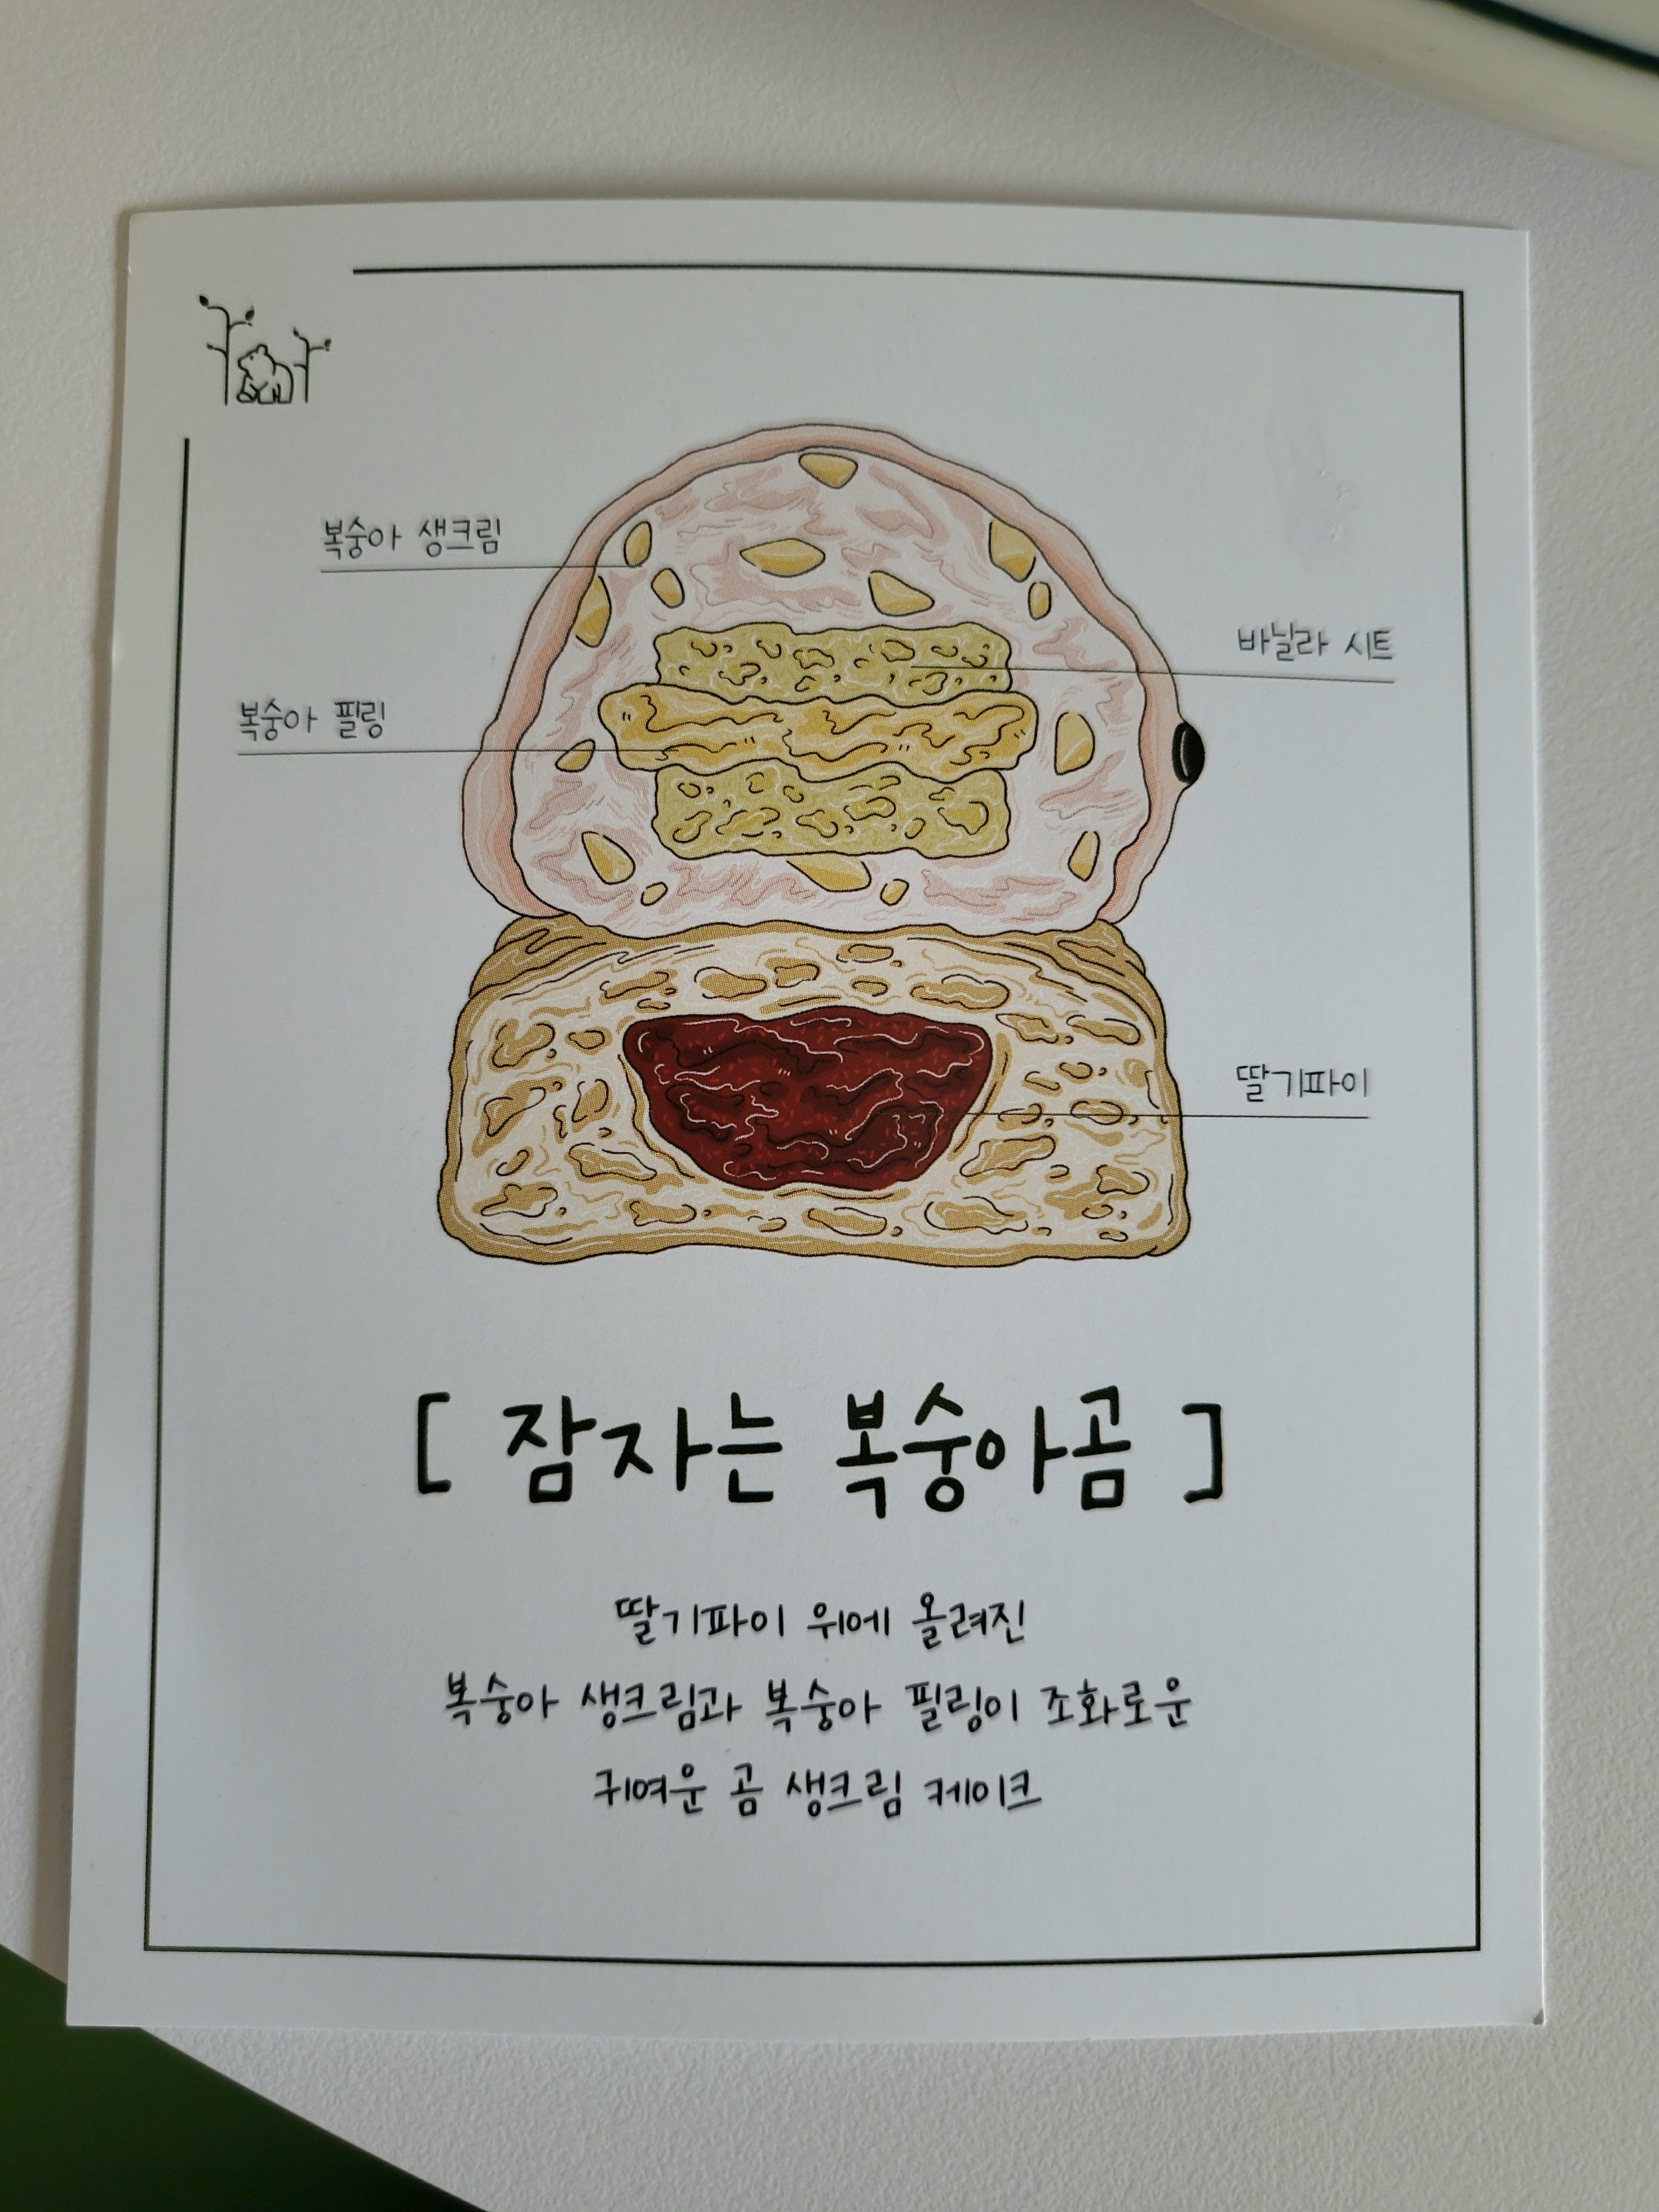 복숭아 생크림
바닐라 시트
복숭아 필링
딸기파이
[ 잠자는 복숭아곰 ]
딸기파이 위에 올려진
복숭아 생크림과 복숭아 필링이 조화로운
귀여운 곰 생크림 케이크